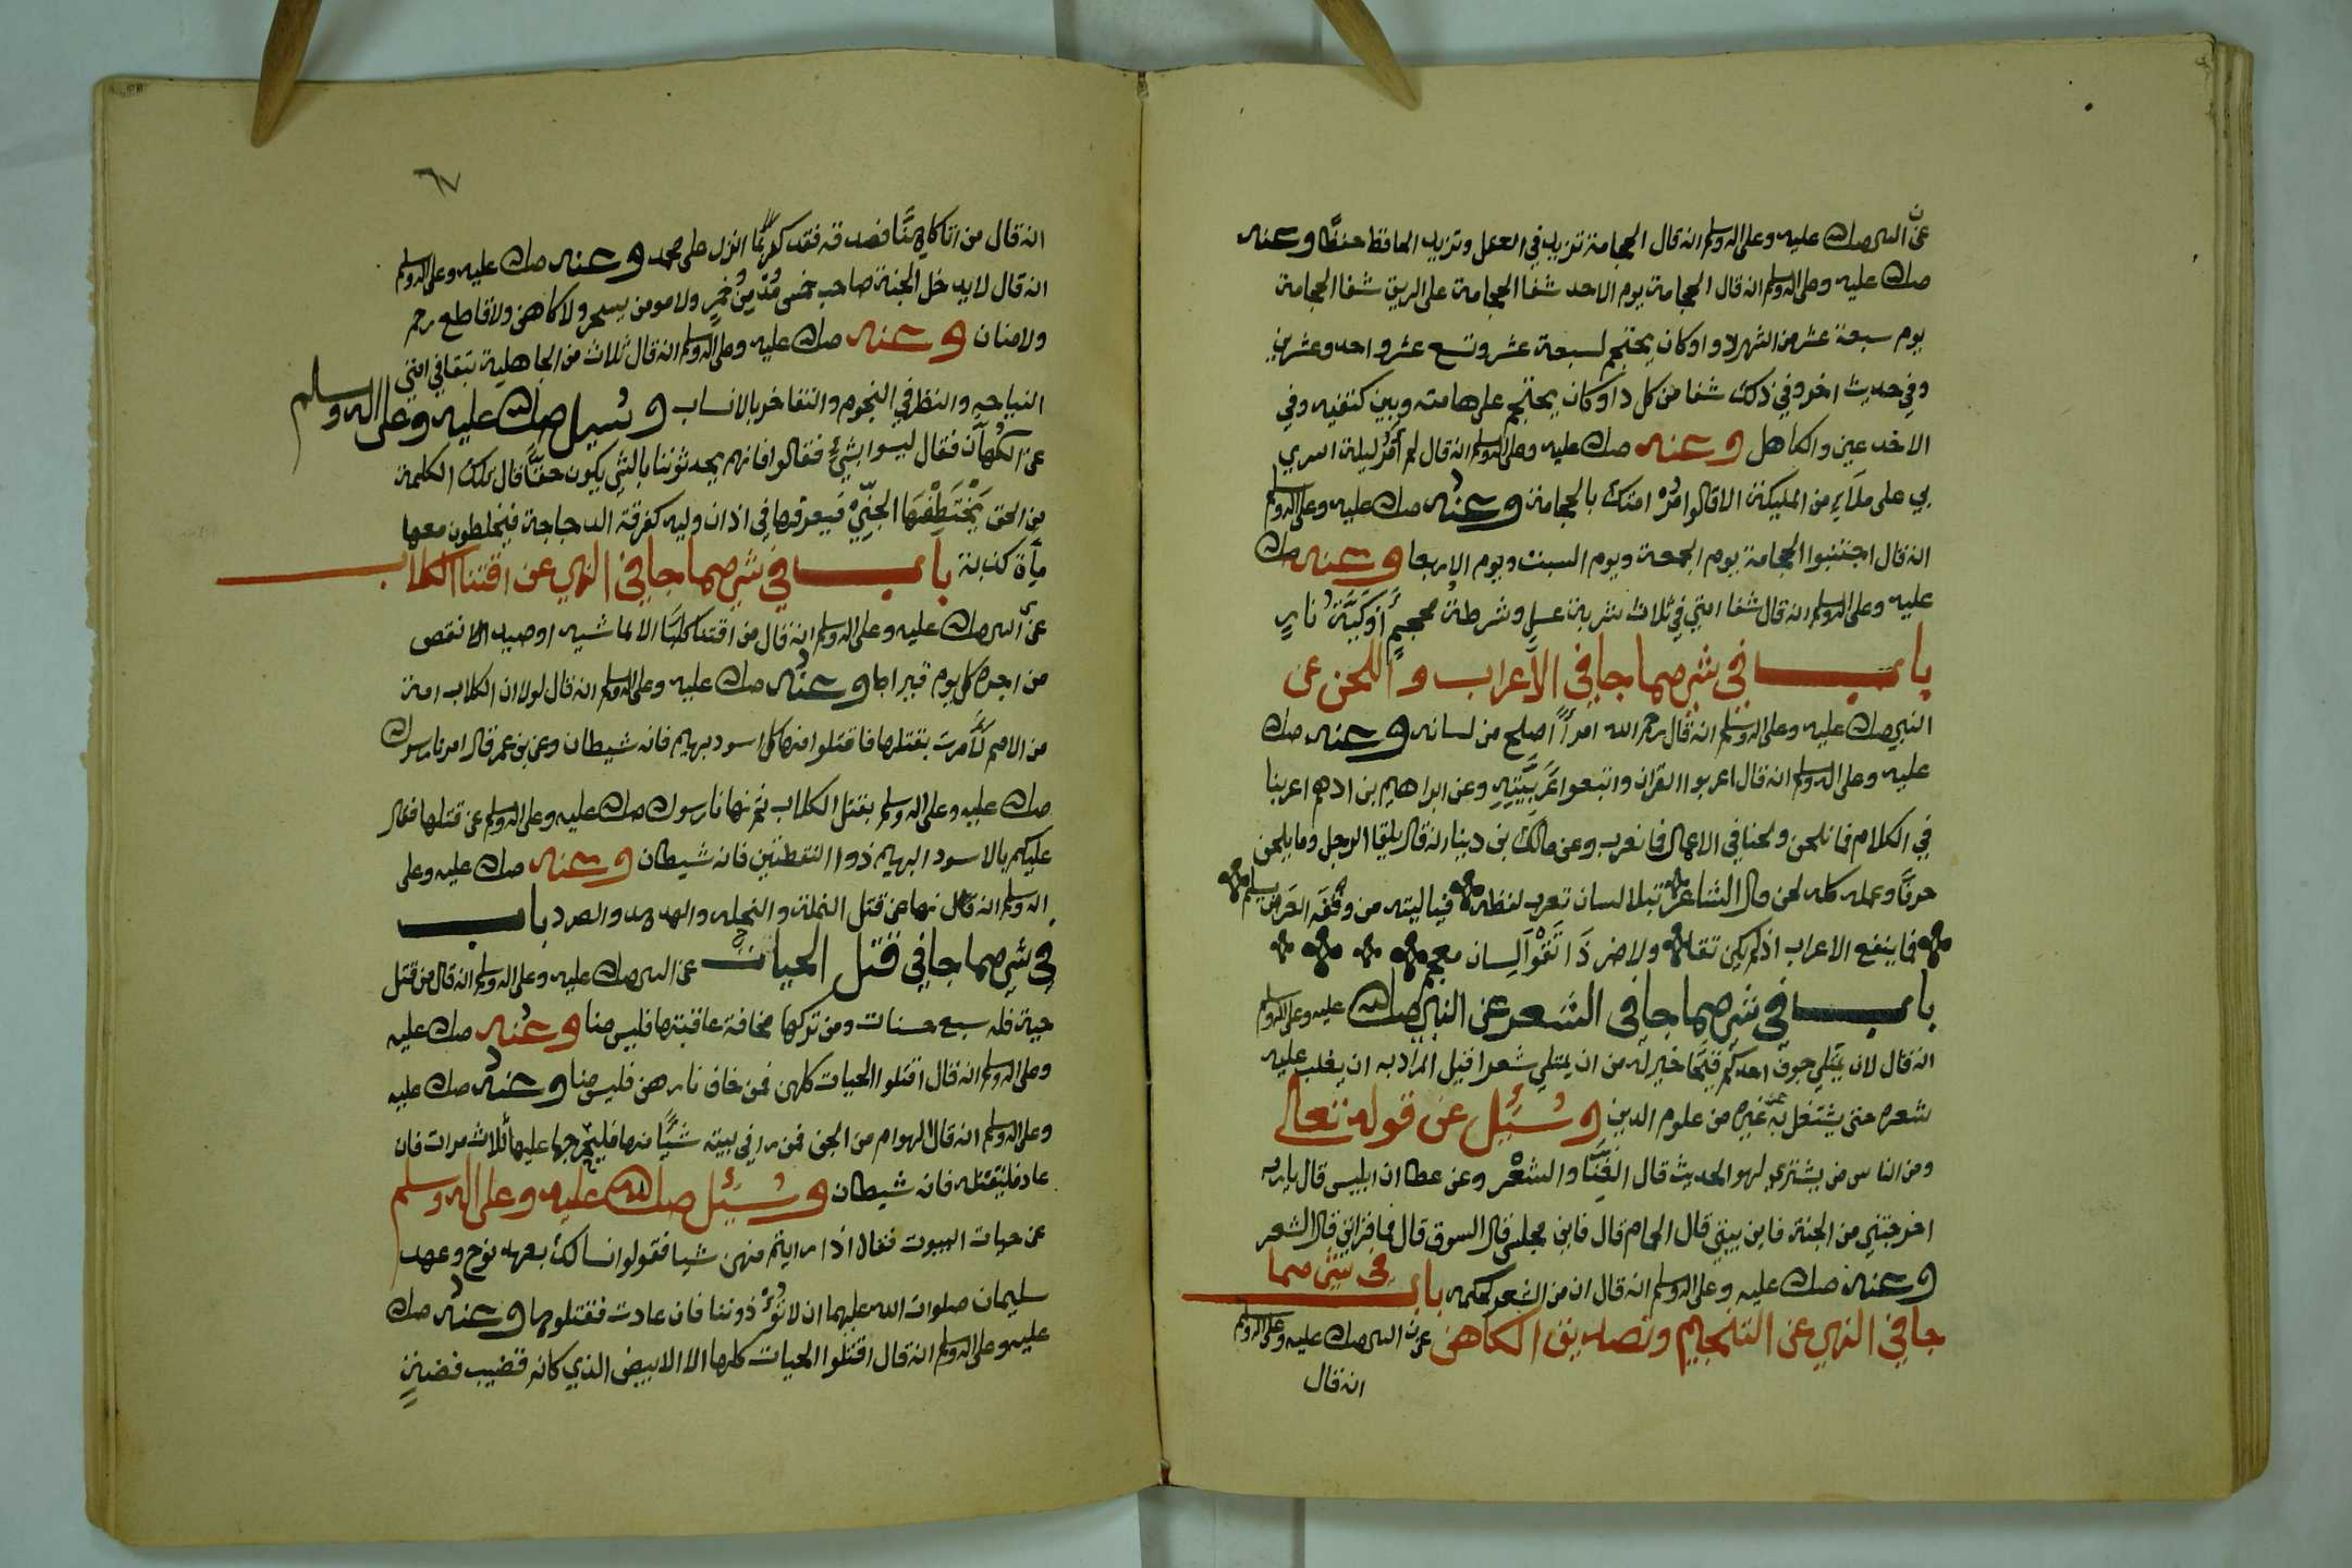 عن النبي صلى الله عليه وعلى اله وسلم انه قال الحجامة تزيد في العقل وتزيد الحافظ حفظًا وعنه
صلى الله عليه وعلى اله وسلم انه قال الحجامة يوم الاحد شفا الحجامة على الريق شفا الحجامة
يوم سبعة عشر من الشهر لاوا وكان يحتجم لسبعة عشر وتسع عشر واحد وعشرين
وفي حديث اخر وفي ذلك شفا من كل داو كان يحتجم على هامته وبين كتفيه وفي
الاخدعين والكاهل وعنه صلى الله عليه وعلى اله وسلم انه قال لم أَمُرّ ليلة اسري
بي على ملاءٍ من المليكة الا قالوا مُرْ امتك بالحجامة وعنه صلى الله عليه وعلى اله وسلم
انه قال اجتنبوا الحجامة يوم الجمعة ويوم السبت ويوم الاربعا وعنه صلى الله
عليه وعلى اله وسلم انه قال شفا امتي في ثلاث شربة عسلٍ وشرطة محجمٍ أوكيّة نارٍ
باب في شي مما جا في الاعراب واللحن عن
النبي صلى الله عليه وعلى اله وسلم انه قال رحم الله امرأً اصلح من لسانه وعنه صلى الله
عليه وعلى اله وسلم انه قال اعربوا القران واتبعوا عَرَبيّتِهِ وعن ابراهيم بن ادهم اعربنا
في الكلام فما نلحن ولحنا في الاعمال فما نعرب وعن مالك بن دينار انه قال يلقا الرجل وما يلحن
حرفًا وعمله كله لحن وقال الشاعر تبلا لسان تعرب لفظه فيا ليته من وقفه العرض يسلم
فما ينفع الاعراب اذ لم يكن تقا ولا ضر ذَا تَقْوَا لِسان معجم
باب في شي مما جا في الشعر عن النبي صلى الله عليه وعلى اله وسلم
انه قال لان يمتلي جوف احدكم قيحًا خير له من ان يمتلي شعرا قيل المراد به ان يغلب عليه
شعره حتى يشتغل به عن غيره من علوم الدين وسُئِل عن قوله تعالى
ومن الناس من يشتري لهو الحديث قال الغِنَا والشعْر وعن عطا ان ابليس قال يا رب
اخرجتني من الجنة فاين بيتي قال الحمام قال فاين مجلسي قال السوق قال فما قراني قال الشعر
وعنه صلى الله عليه وعلى اله وسلم انه قال ان من الشعر لحكمه باب في شي مما
جا في النهي عن التنجيم وتصديق الكاهن عن النبي صلى الله عليه وعلى اله وسلم
انه قال
٦٧
انه قال من اتا كاهنًا فصدقه فقد كفر بما انزل على محمد وعنه صلى الله عليه وعلى اله وسلم
انه قال لا يدخل الجنة صاحب خمس مُدْمِنُ خمرٍ ولا مومن بسحر ولا كاهن ولا قاطع رحم
ولا منان وعنه صلى الله عليه وعلى اله وسلم انه قال ثلاث من الجاهلية تبقا في امتي
النياحه والنظر في النجوم والتفاخر بالانساب وسُيل صلى الله عليه وعلى اله وسلم
عن الكُهّان فقال ليسوا بشيءٍ فقالوا فانهم يحدثوننا بالشي يكون حقًّا قال تلك الكلمة
من الحق يَخْتَطِفُهَا الجِنِّيُّ فيعرقرها في اذان وليه كقرقة الدجاجة فيخلطون معها
مأة كذبة باب في شي مما جا في النهي عن اقتنا الكلاب
عن النبي صلى الله عليه وعلى اله وسلم انه قال من اقتنا كلبًا الا لماشيه او صيد الا نقص
من اجره كل يوم قيراط وعنه صلى الله عليه وعلى اله وسلم انه قال لولا ان الكلاب امة
من الامم لأَمرت بقتلها فاقتلوا منها كل اسود بهيم فانه شيطان وعن بن عمر قال امرنا رسول الله
صلى الله عليه وعلى اله وسلم بقتل الكلاب ثم نهانا رسول الله صلى الله عليه وعلى اله وسلم عن قتلها فقال
عليكم بالاسود البهيم ذوا النقطتين فانه شيطان وعنه صلى الله عليه وعلى
اله وسلم انه قال نها عن قتل النملة والنحله والهدهد والصرد باب
في شي مما جا في قتل الحيات عن النبي صلى الله عليه وعلى اله وسلم انه قال من قتل
حية فله سبع حسنات ومن تركها مخافة عاقبتها فليس منا وعنه صلى الله عليه
وعلى اله وسلم انه قال اقتلوا الحيات كلهن فمن خاف ثارهن فليس منا وعنه صلى الله عليه
وعلى اله وسلم انه قال الهوام من الجن فمن را في بيته شيًّا منها فليحرج عليها ثلاث مرات فان
عاد فليقتله فانه شيطان وسُئِل صلى الله عليه وعلى اله وسلم
عن حيات البيوت فقال اذا رايتم منهن شيا فقولوا نسالك بعهد نوح وعهد
سليمان صلوات الله عليهما ان لا تُؤذوننا فان عادت فقتلوها وعنه صلى الله
عليه وعلى اله وسلم انه قال اقتلوا الحيات كلها الا الابيض الذي كانه قضيب فضةٍ